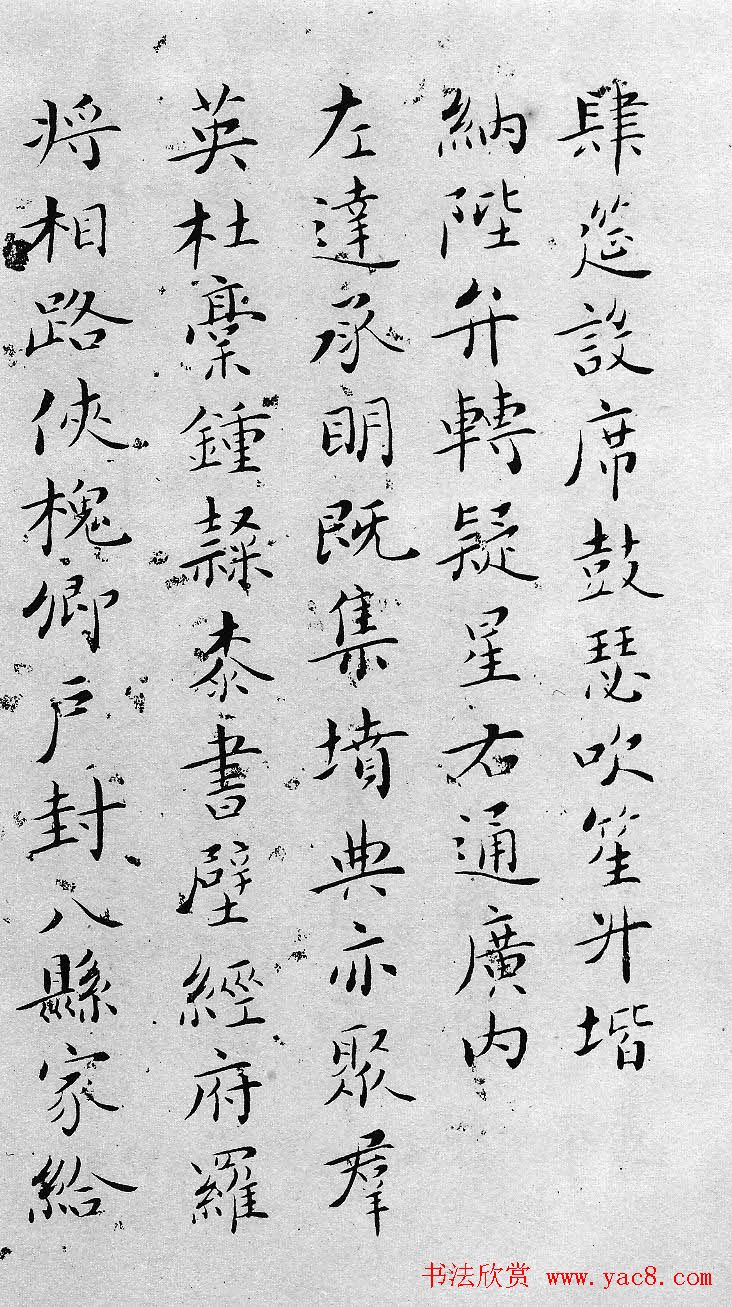 肆筵設席鼓瑟吹笙升堦
納陛弁轉疑星右通廣内
左達承明既集墳典亦聚羣
英杜稾鍾隸桼書壁經府羅
将相路俠槐卿户封八縣家給
书法欣赏 www.yac8.com